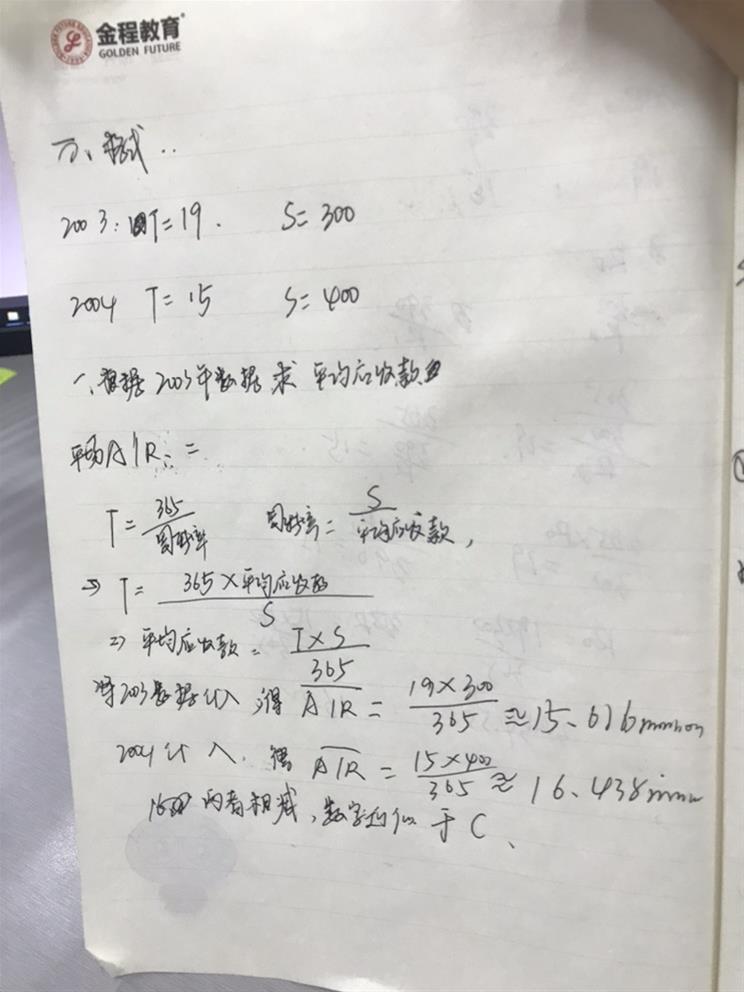 金程教育
GOLDEN FUTURE
2003: T=19. S=300
2004 T=15 S=400
一、根据2003年数据求 平均应收款
平均A/R: =
T = 365/周转率 周转率 = S/平均应收款,
⇒ T = 365×平均应收款/S
⇒ 平均应收款 = T×S/365
将2003数据代入,得 A/R = 19×300/365 ≈15.616
2004代入,得 A/R = 15×400/365 ≈ 16.438
两者相减,数字近似于C、